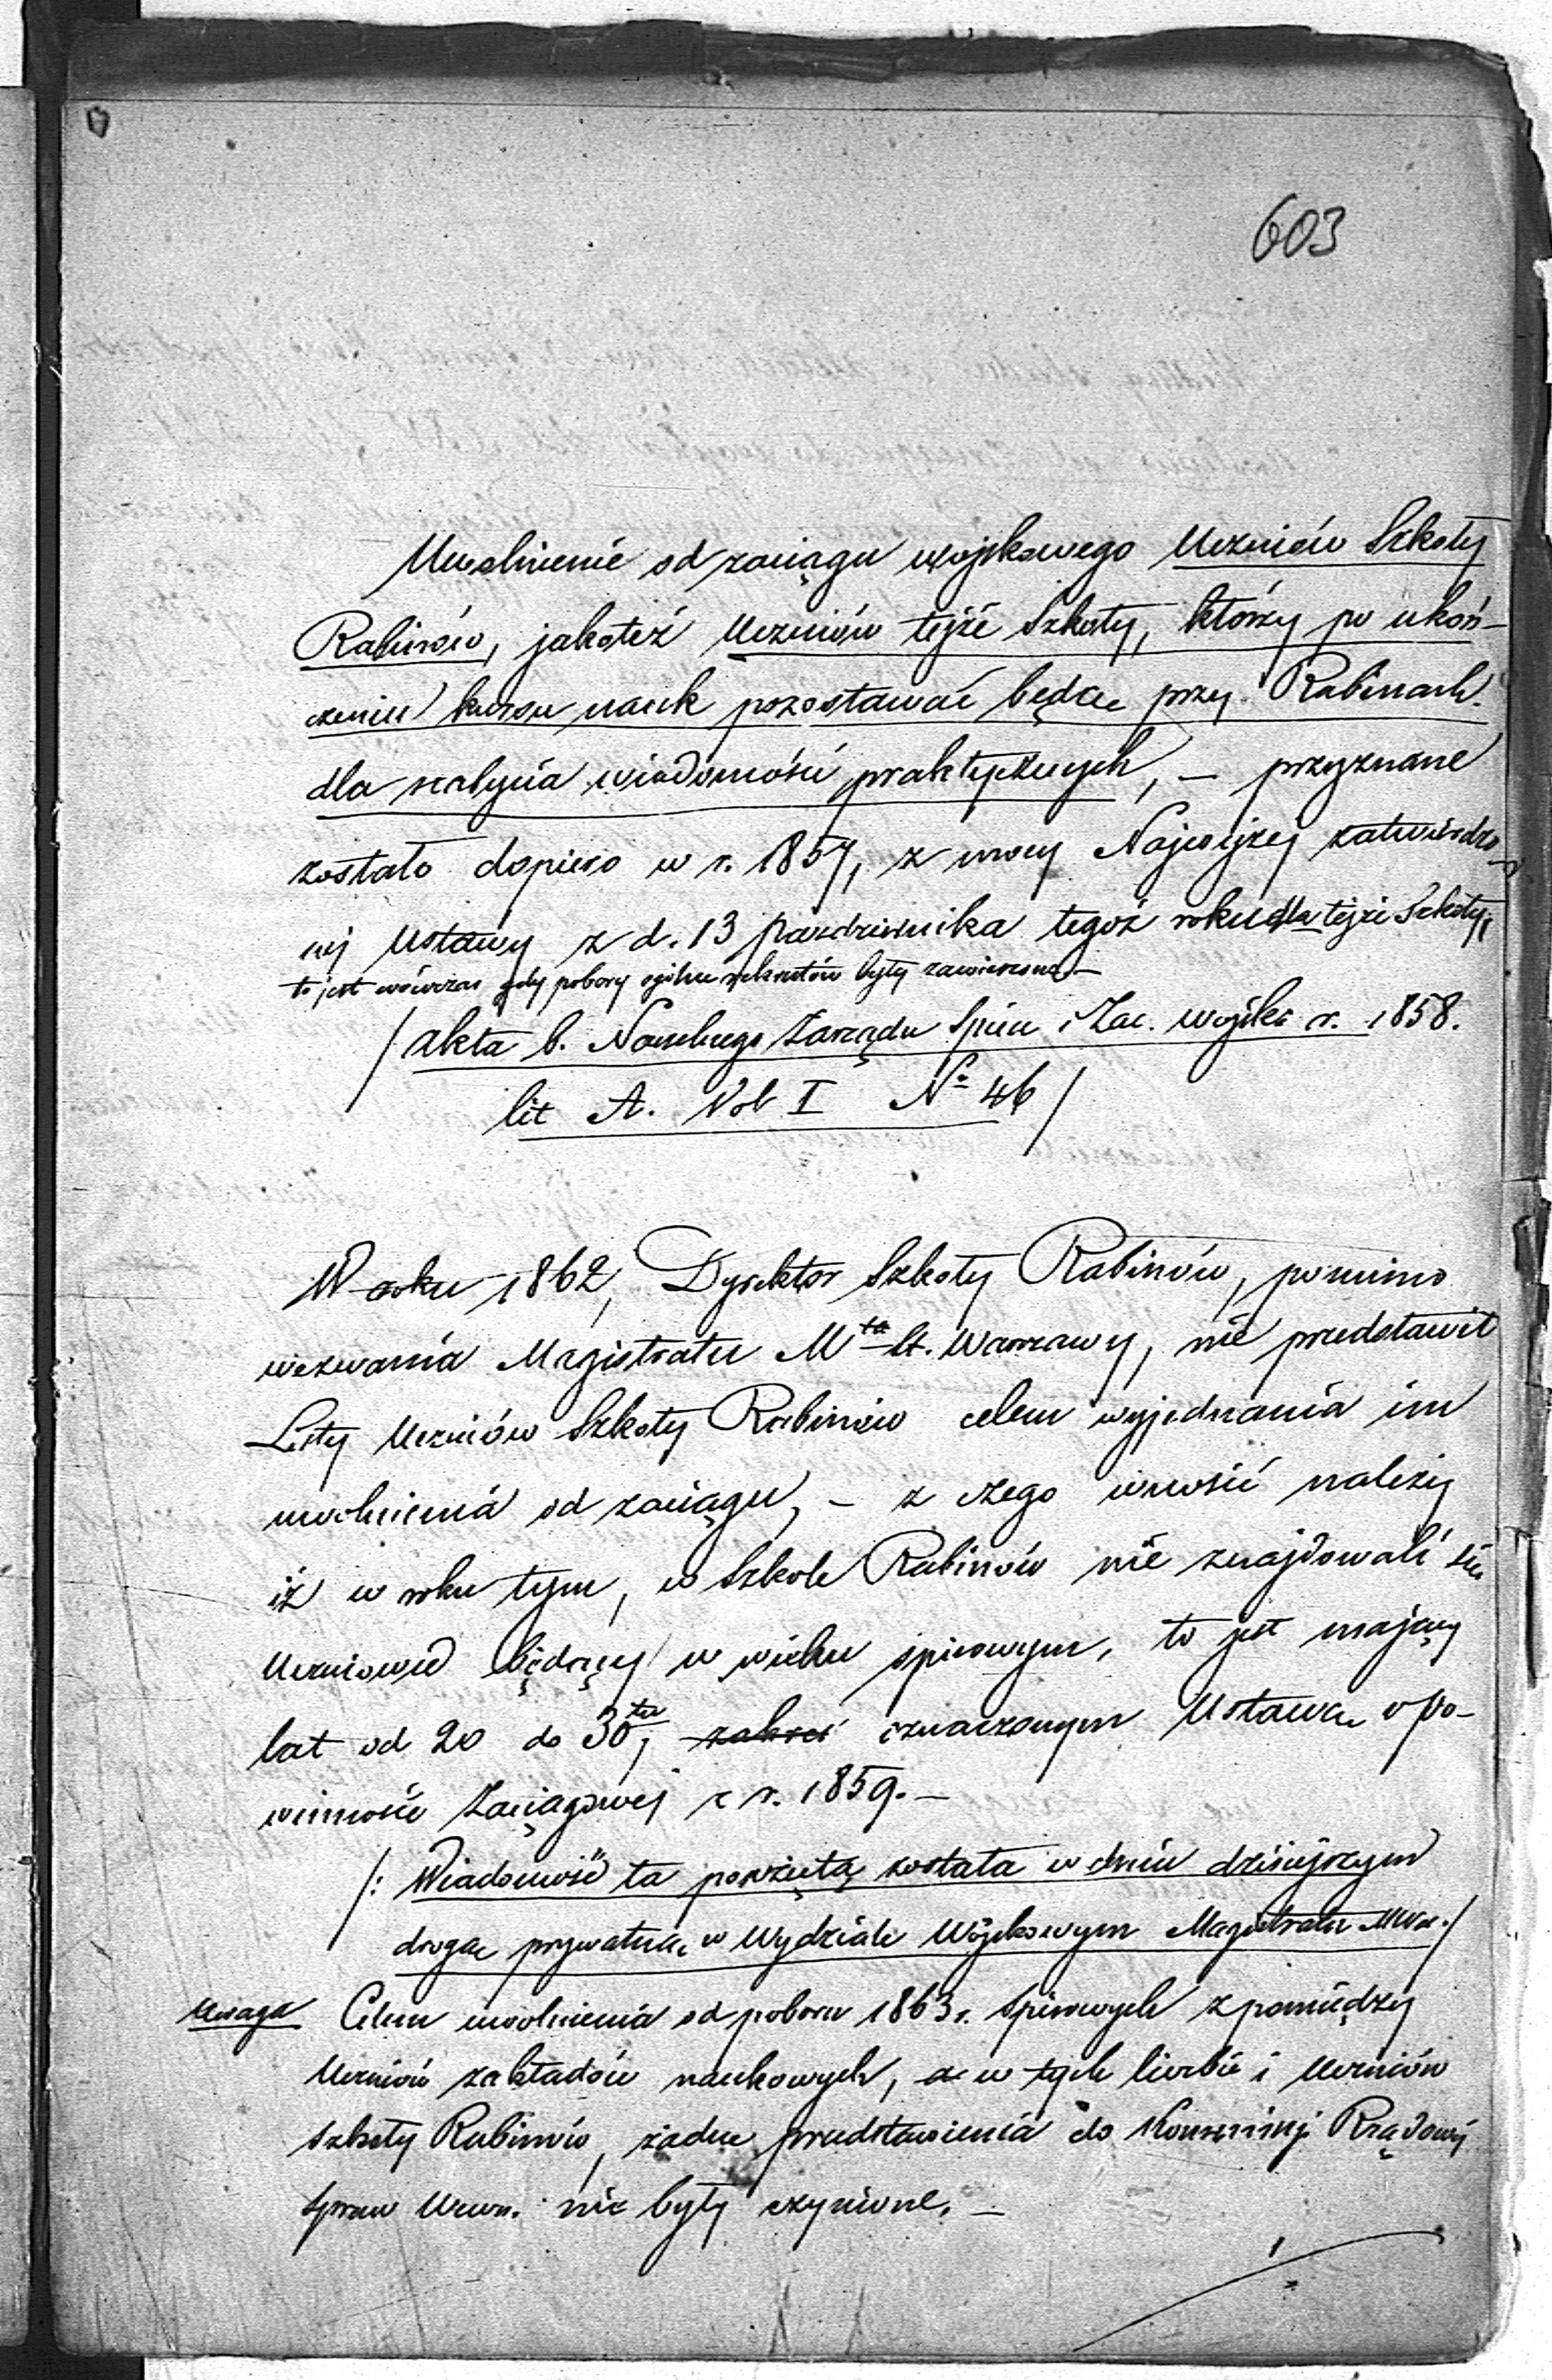 603
Uwolnienie od zaciągu wojskowego Uczniów Szkoły
Rabinów, jakoteż Uczniów tejże Szkoły, którzy po ukoń-
czeniu kursu nauk pozostawać będą przy Rabinach
dla nabycia wiadomości praktycznych, — przyznane
zostało dopiero w r. 1857, z mocy Najwyżej zatwierdzo-
nej Ustawy z d. 13 października tegoż roku dla tejże Szkoły,
to jest wówczas gdy pobory ogólne rekrutów były zawieszone. —
/ akta b. Naczelnego Zarządu Spisu i Zac. Wojsk: r. 1858.
lit A. Vol I № 46 /
W roku 1862, Dyrektor Szkoły Rabinów, pomimo
wezwania Magistratu Mta St. Warszawy, nie przedstawił
Listy Uczniów Szkoły Rabinów celem wyjednania im
uwolnienia od zaciągu, — z czego wnosić należy
iż w roku tym, w Szkole Rabinów nie znajdowali się
Uczniowie będący w wieku spisowym, to jest mający
lat od 20 do 30tu, oznaczonym Ustawą o Po-
winności Zaciągowej z r. 1859. —
/: Wiadomość ta powziętą została w dniu dzisiejszym
drogą prywatną w Wydziale Wojskowym Magistratu MWa. /
Uwaga Celem uwolnienia od poboru 1863 r. Spisowych z pomiędzy
Uczniów zakładów naukowych, a w tych liczbie i Uczniów
Szkoły Rabinów, żadne przedstawienia do Kommissji Rządowej
Spraw Wewn. nie były czynione. —